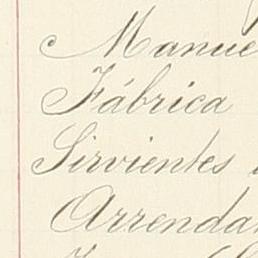 Manue
Fábrica
Sirvientes
Arrenda